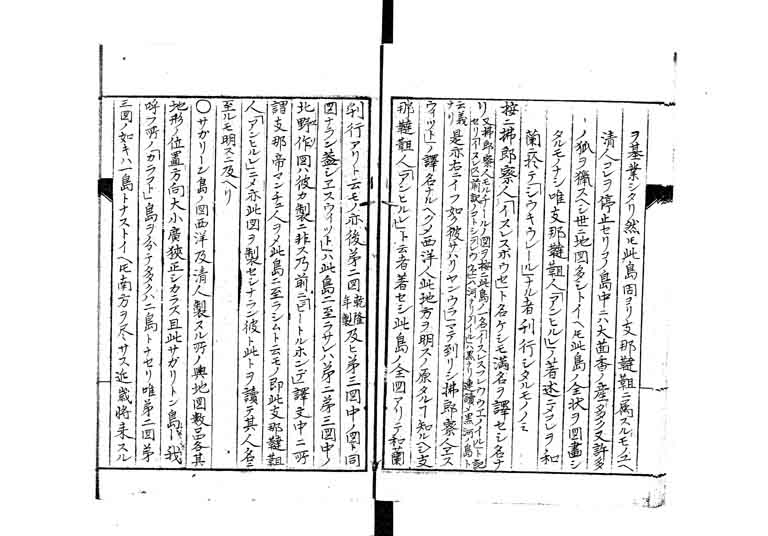 ヲ基業シタリ然モ此島固ヨリ支那韃靼ニ属スルモノユヘ
清人コレヲ停止セリ又コノ島中ニハ大茴香ノ産多ク又許多
ノ狐ヲ猟スヘシ世ニ地図多シトイヘ𪜈此島ノ全状ヲ図畫シ
タルモノナシ唯支那韃靼人「アンヒルレ」ノ著述ニメコレヲ和
蘭ニ於テ ナル者刊行シタルモノノミ
按ニ拂郎察人「イスレスホウセト名ケシモ満名ヲ譯セシ名ナ
リ又拂郎察人 ノ図ヲ按ニ此島ノ一名 ト記
セリ ハ河ナリ ハ黒ナリ連續メ黒河島ト
云義ナリ 是亦右ニイフ如ク彼サハリヤンウラニマテ到リシ拂郎察人ヱス
ウィットノ譯名ナルヘシメ西洋人此地方ヲ明スノ原タルヿ知ルヘシ支
那韃靼人「アンヒルレ」ト云者著セシ此島ノ全図アリテ和蘭
刊行アリト云モノ亦後第二図乾隆年製及ヒ第三図中ノ図ト同
図ナラン蓋シヱスウィット」ハ此島ニ至ラサレハ第二第三図中ノ
北野作図ハ彼カ製ニ非ス乃前ニ「ビートルホンデ」譯文中ニ所
謂支那帝マンチュ人ヲメ此島ニ至ラシムト云モノ即此支那韃靼
人「アンヒルレ」ニメ亦此図ヲ製セシナラン彼ト此トヲ讀テ其人名ニ
至ルモ明スニ及ヘリ
〇サガリーン島ノ図西洋及清人製スル所ノ輿地図数品各其
地形ノ位置方向大小廣狹正シカラス且此サガリートン島ト我
呼フ所ノ「カラフト」島ヲ分チタクハ二島トナセリ唯第二図第
三図ノ如キハ一島トナストイヘ𪜈南方ヲ尽サス近歳将来スル